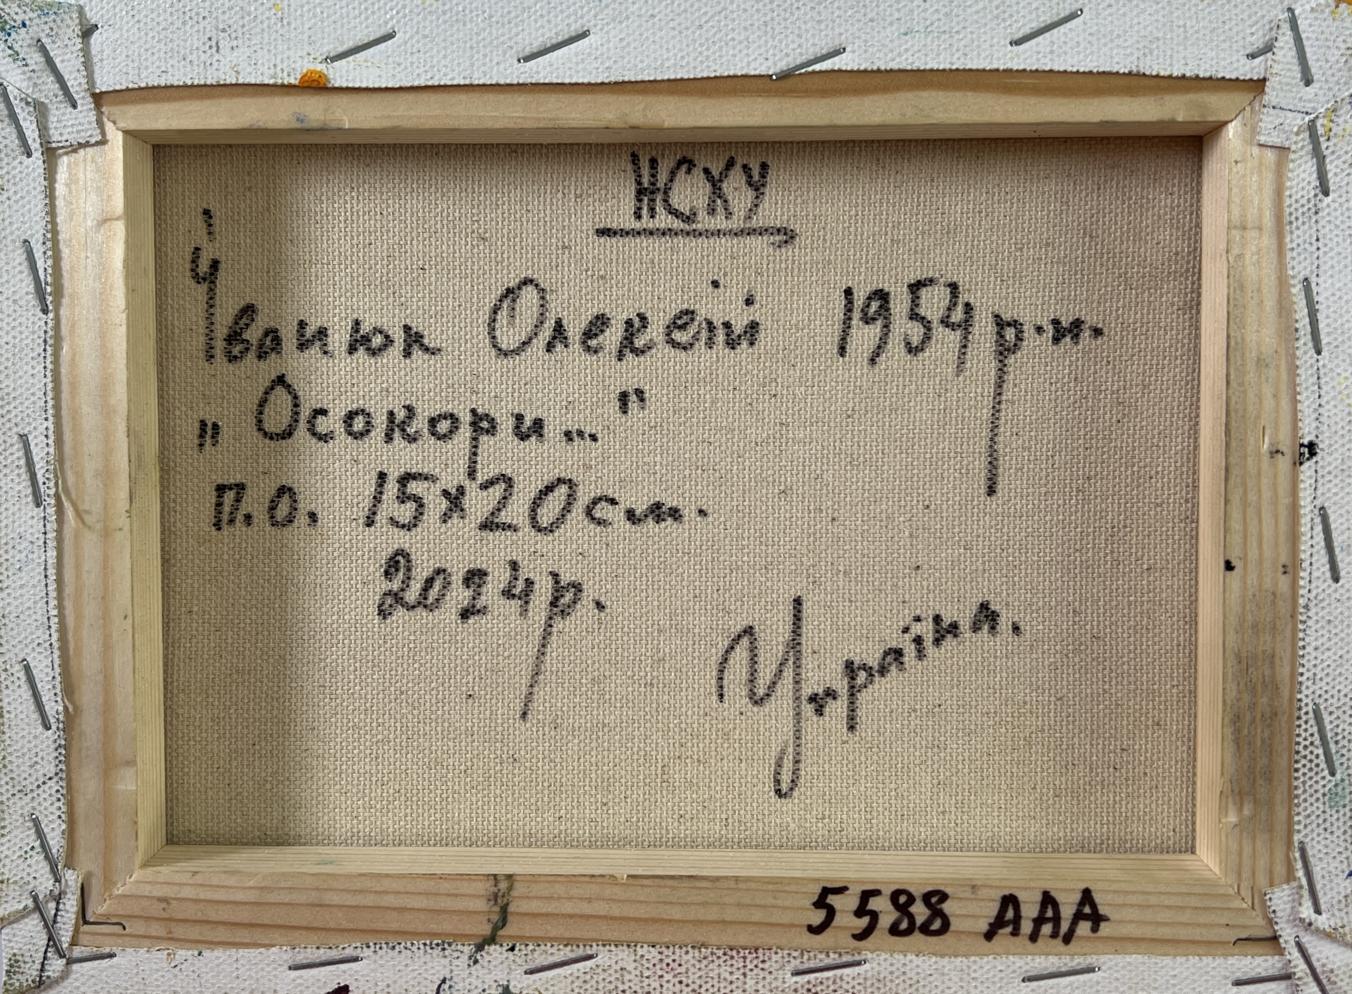 НСХУ
Іванюк Олексій 1954 р.н.
„Осокори..."
п.о. 15x20 см.
2024р.
Україна.
5588 AAA